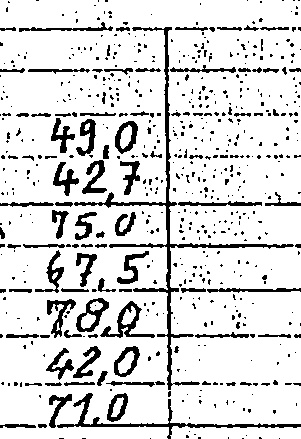 49,0
42,7
75.0
67,5
78,0
42,0
71.0